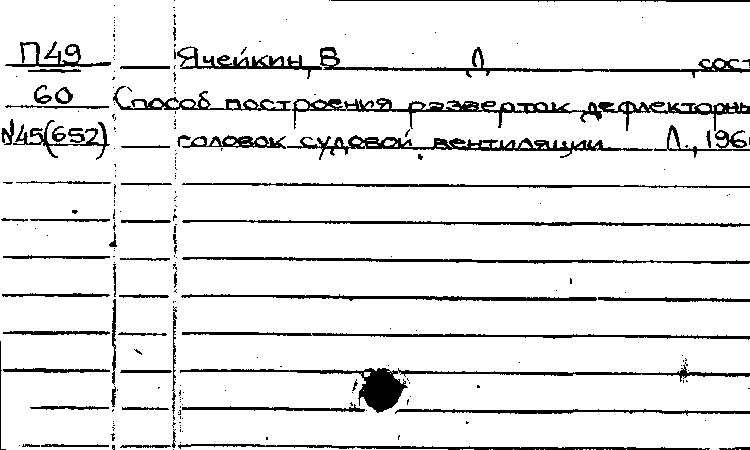 П49 Ячейкин, В Л, сост
60 Способ построения разверток дефлекторны
N45(652) головок судовой вентиляции. Л., 196